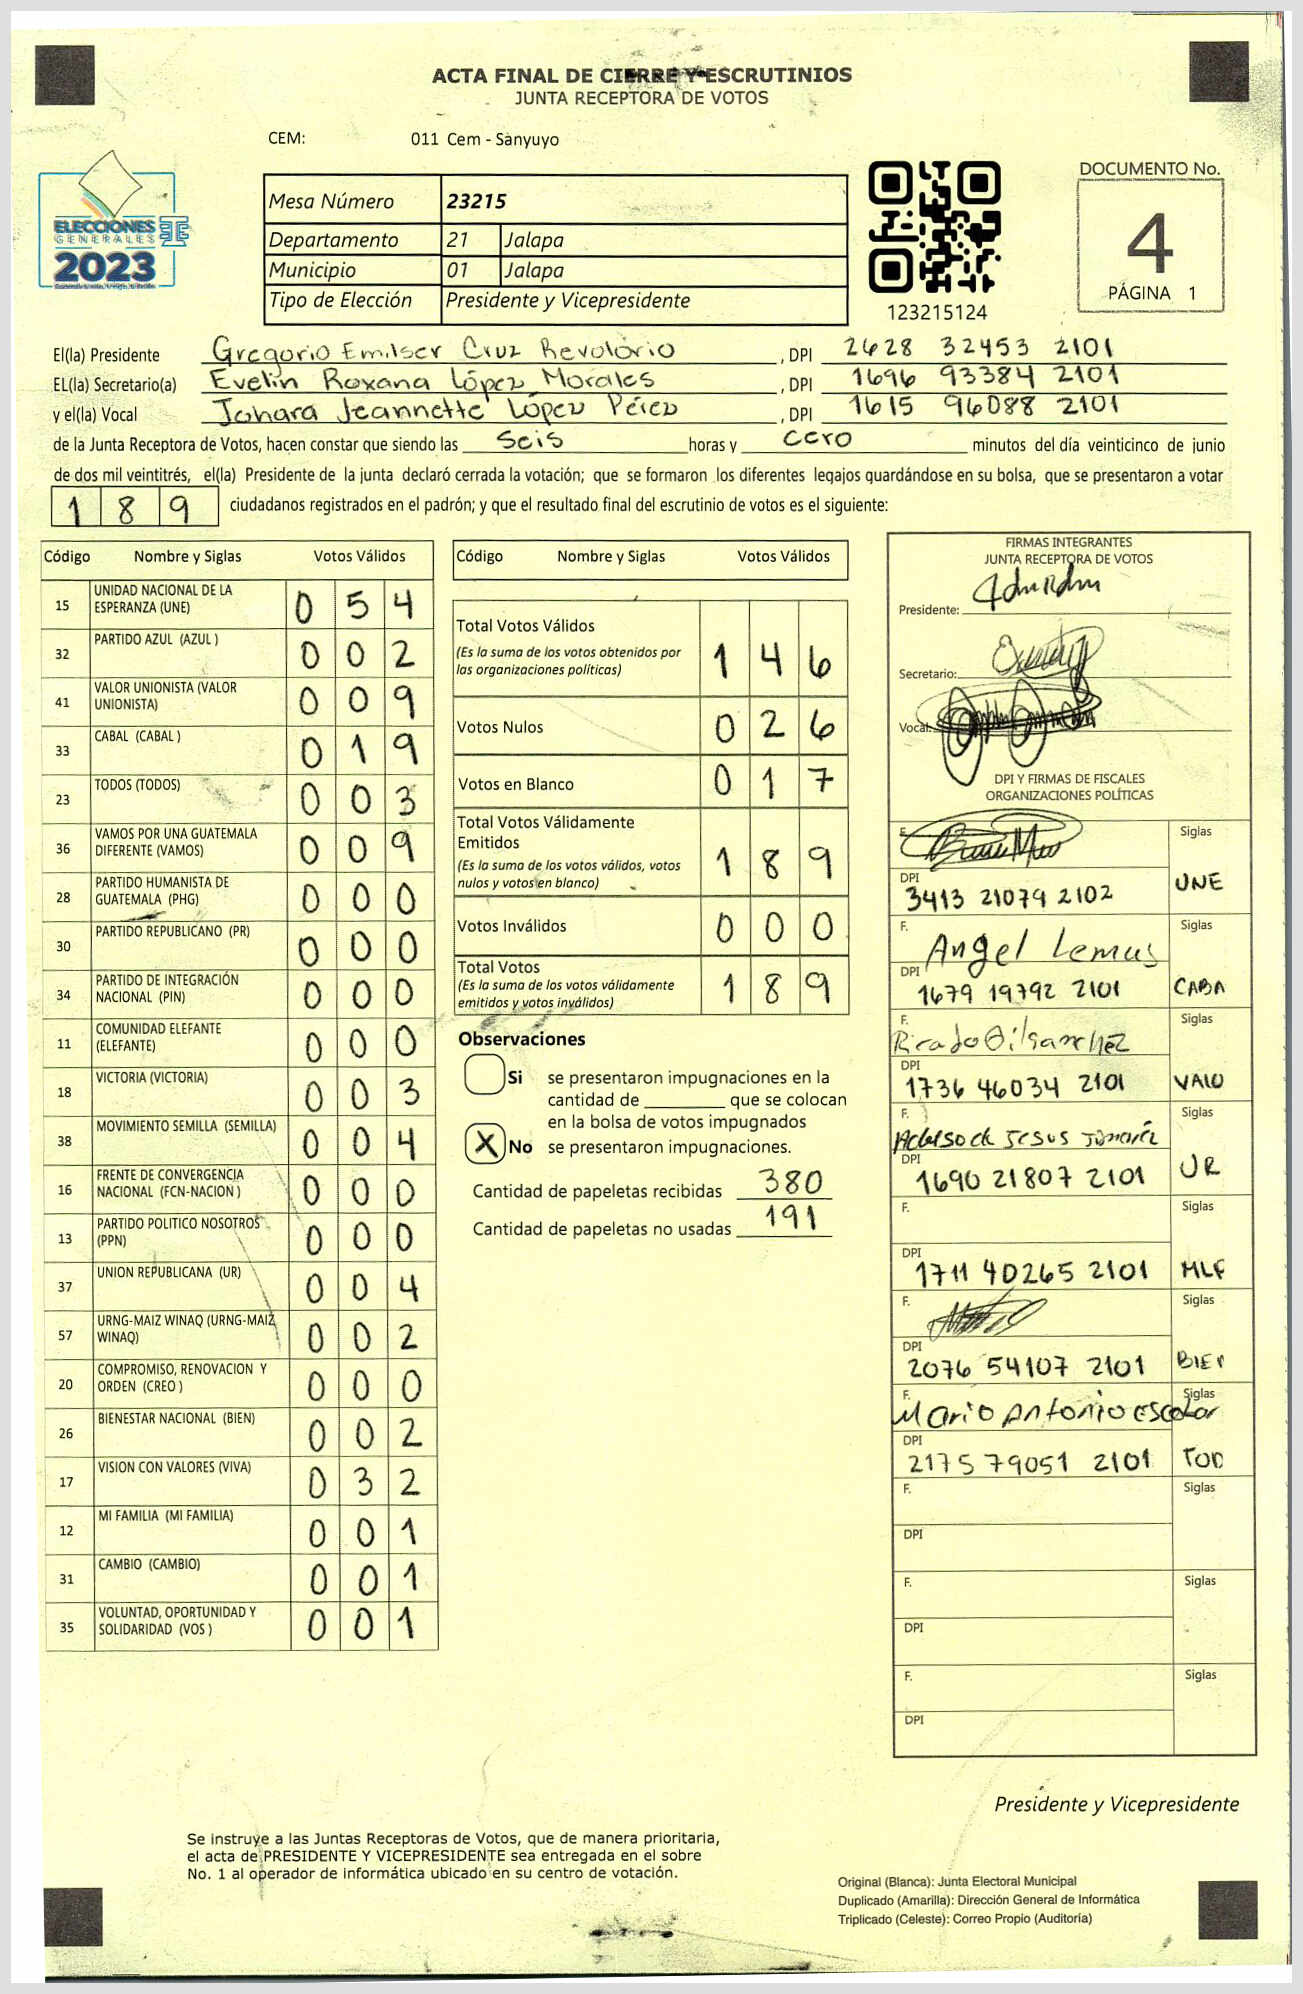 ACTA FINAL DE CIERRE Y ESCRUTINIOS
JUNTA RECEPTORA DE VOTOS
CEM: 011 Cem - Sanyuyo
ELECCIONES
GENERALES
2023
Mesa Número 23215
Departamento 21 Jalapa
Municipio 01 Jalapa
Tipo de Elección Presidente y Vicepresidente
123215124
DOCUMENTO No.
4
PÁGINA 1
El(la) Presidente Gregorio Emilser Cruz Revolorio , DPI 2628 32453 2101
EL(la) Secretario(a) Evelin Roxana López Morales , DPI 1696 93384 2101
y el(la) Vocal Johara Jeannette López Pérez , DPI 1615 96088 2101
de la Junta Receptora de Votos, hacen constar que siendo las seis horas y cero minutos del día veinticinco de junio
de dos mil veintitrés, el(la) Presidente de la junta declaró cerrada la votación; que se formaron los diferentes legajos quardándose en su bolsa, que se presentaron a votar
189 ciudadanos registrados en el padrón; y que el resultado final del escrutinio de votos es el siguiente:
Código Nombre y Siglas Votos Válidos
15 UNIDAD NACIONAL DE LA ESPERANZA (UNE) 0 5 4
32 PARTIDO AZUL (AZUL ) 0 0 2
41 VALOR UNIONISTA (VALOR UNIONISTA) 0 0 9
33 CABAL (CABAL ) 0 1 9
23 TODOS (TODOS) 0 0 3
36 VAMOS POR UNA GUATEMALA DIFERENTE (VAMOS) 0 0 9
28 PARTIDO HUMANISTA DE GUATEMALA (PHG) 0 0 0
30 PARTIDO REPUBLICANO (PR) 0 0 0
34 PARTIDO DE INTEGRACIÓN NACIONAL (PIN) 0 0 0
11 COMUNIDAD ELEFANTE (ELEFANTE) 0 0 0
18 VICTORIA (VICTORIA) 0 0 3
38 MOVIMIENTO SEMILLA (SEMILLA) 0 0 4
16 FRENTE DE CONVERGENCIA NACIONAL (FCN-NACION ) 0 0 0
13 PARTIDO POLITICO NOSOTROS (PPN) 0 0 0
37 UNION REPUBLICANA (UR) 0 0 4
57 URNG-MAIZ WINAQ (URNG-MAIZ WINAQ) 0 0 2
20 COMPROMISO, RENOVACION Y ORDEN (CREO ) 0 0 0
26 BIENESTAR NACIONAL (BIEN) 0 0 2
17 VISION CON VALORES (VIVA) 0 3 2
12 MI FAMILIA (MI FAMILIA) 0 0 1
31 CAMBIO (CAMBIO) 0 0 1
35 VOLUNTAD, OPORTUNIDAD Y SOLIDARIDAD (VOS ) 0 0 1
Código Nombre y Siglas Votos Válidos
Total Votos Válidos 1 4 6
(Es la suma de los votos obtenidos por
las organizaciones políticas)
Votos Nulos 0 2 6
Votos en Blanco 0 1 7
Total Votos Válidamente
Emitidos 1 8 9
(Es la suma de los votos válidos, votos
nulos y votos en blanco)
Votos Inválidos 0 0 0
Total Votos 1 8 9
(Es la suma de los votos válidamente
emitidos y votos inválidos)
Observaciones
Si se presentaron impugnaciones en la
cantidad de ________ que se colocan
en la bolsa de votos impugnados
X No se presentaron impugnaciones.
Cantidad de papeletas recibidas 380
Cantidad de papeletas no usadas 191
FIRMAS INTEGRANTES
JUNTA RECEPTORA DE VOTOS
Presidente:
Secretario:
Vocal:
DPI Y FIRMAS DE FISCALES
ORGANIZACIONES POLÍTICAS
F. Siglas
DPI 3413 21079 2102 UNE
F. Angel Lemus Siglas
DPI 1679 19792 2101 CABA
F. Ricardo Gil Sanchez Siglas
DPI 1736 46034 2101 VALO
F. de Jesus Siglas
DPI 1690 21807 2101 UR
F. Siglas
DPI 1711 40265 2101 MLF
F. Siglas
DPI 2076 54107 2101 BIEN
F. Mario Antonio Escobar Siglas
DPI 2175 79051 2101 TOD
F. Siglas
DPI
F. Siglas
DPI
F. Siglas
DPI
Presidente y Vicepresidente
Se instruye a las Juntas Receptoras de Votos, que de manera prioritaria,
el acta de PRESIDENTE Y VICEPRESIDENTE sea entregada en el sobre
No. 1 al operador de informática ubicado en su centro de votación.
Original (Blanca): Junta Electoral Municipal
Duplicado (Amarilla): Dirección General de Informática
Triplicado (Celeste): Correo Propio (Auditoría)